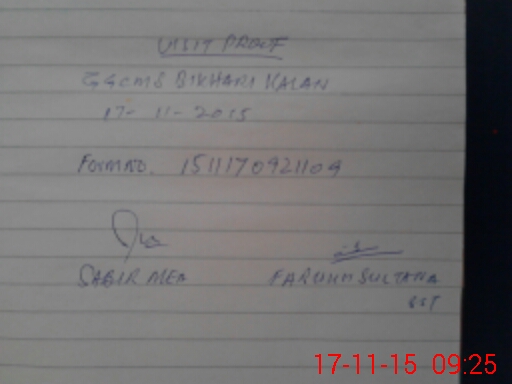 VISIT PROOF
GGCMS BIKHARI KALAN
17-11-2015
Form no. 1511170921109
SABIR
SULTANA
SST
17-11-15 09:25